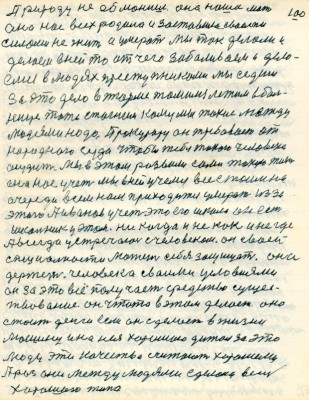 Природу не обманиш. она наша мать 100
она нас всех родила и заставила своими
силами не жить а умерать мы так делаем и
делаем в ней то от чего забаливаем а дело
сами в людях преступниками мы садим
за это дело в тюрме томими летами в бол-
нице тоже стогним кому мы такие между
людями надо. Прокурору он требовает от
народного суда чтобы тебя такого человека
осудить. Мы в этом развили саму такую
она нас учет мы в ней учемся все стоим на
очереди всем нам приходится умерать из за
этого Аиванов учет это его школа он есть
школник у этом. ни когда и не как и негде
Авсегда устречается с человеком. он своей
специалности может себя защищать. он и
держит. человека своими условиями
он за это всё получает средство сущес-
твование он что то в этом делает оно
стоит денги если он сделает в жизни
машину и на ней хорошего для за это
люди эти качества считают хорошими
Араз они между людями сделали вещ
хорошего типа